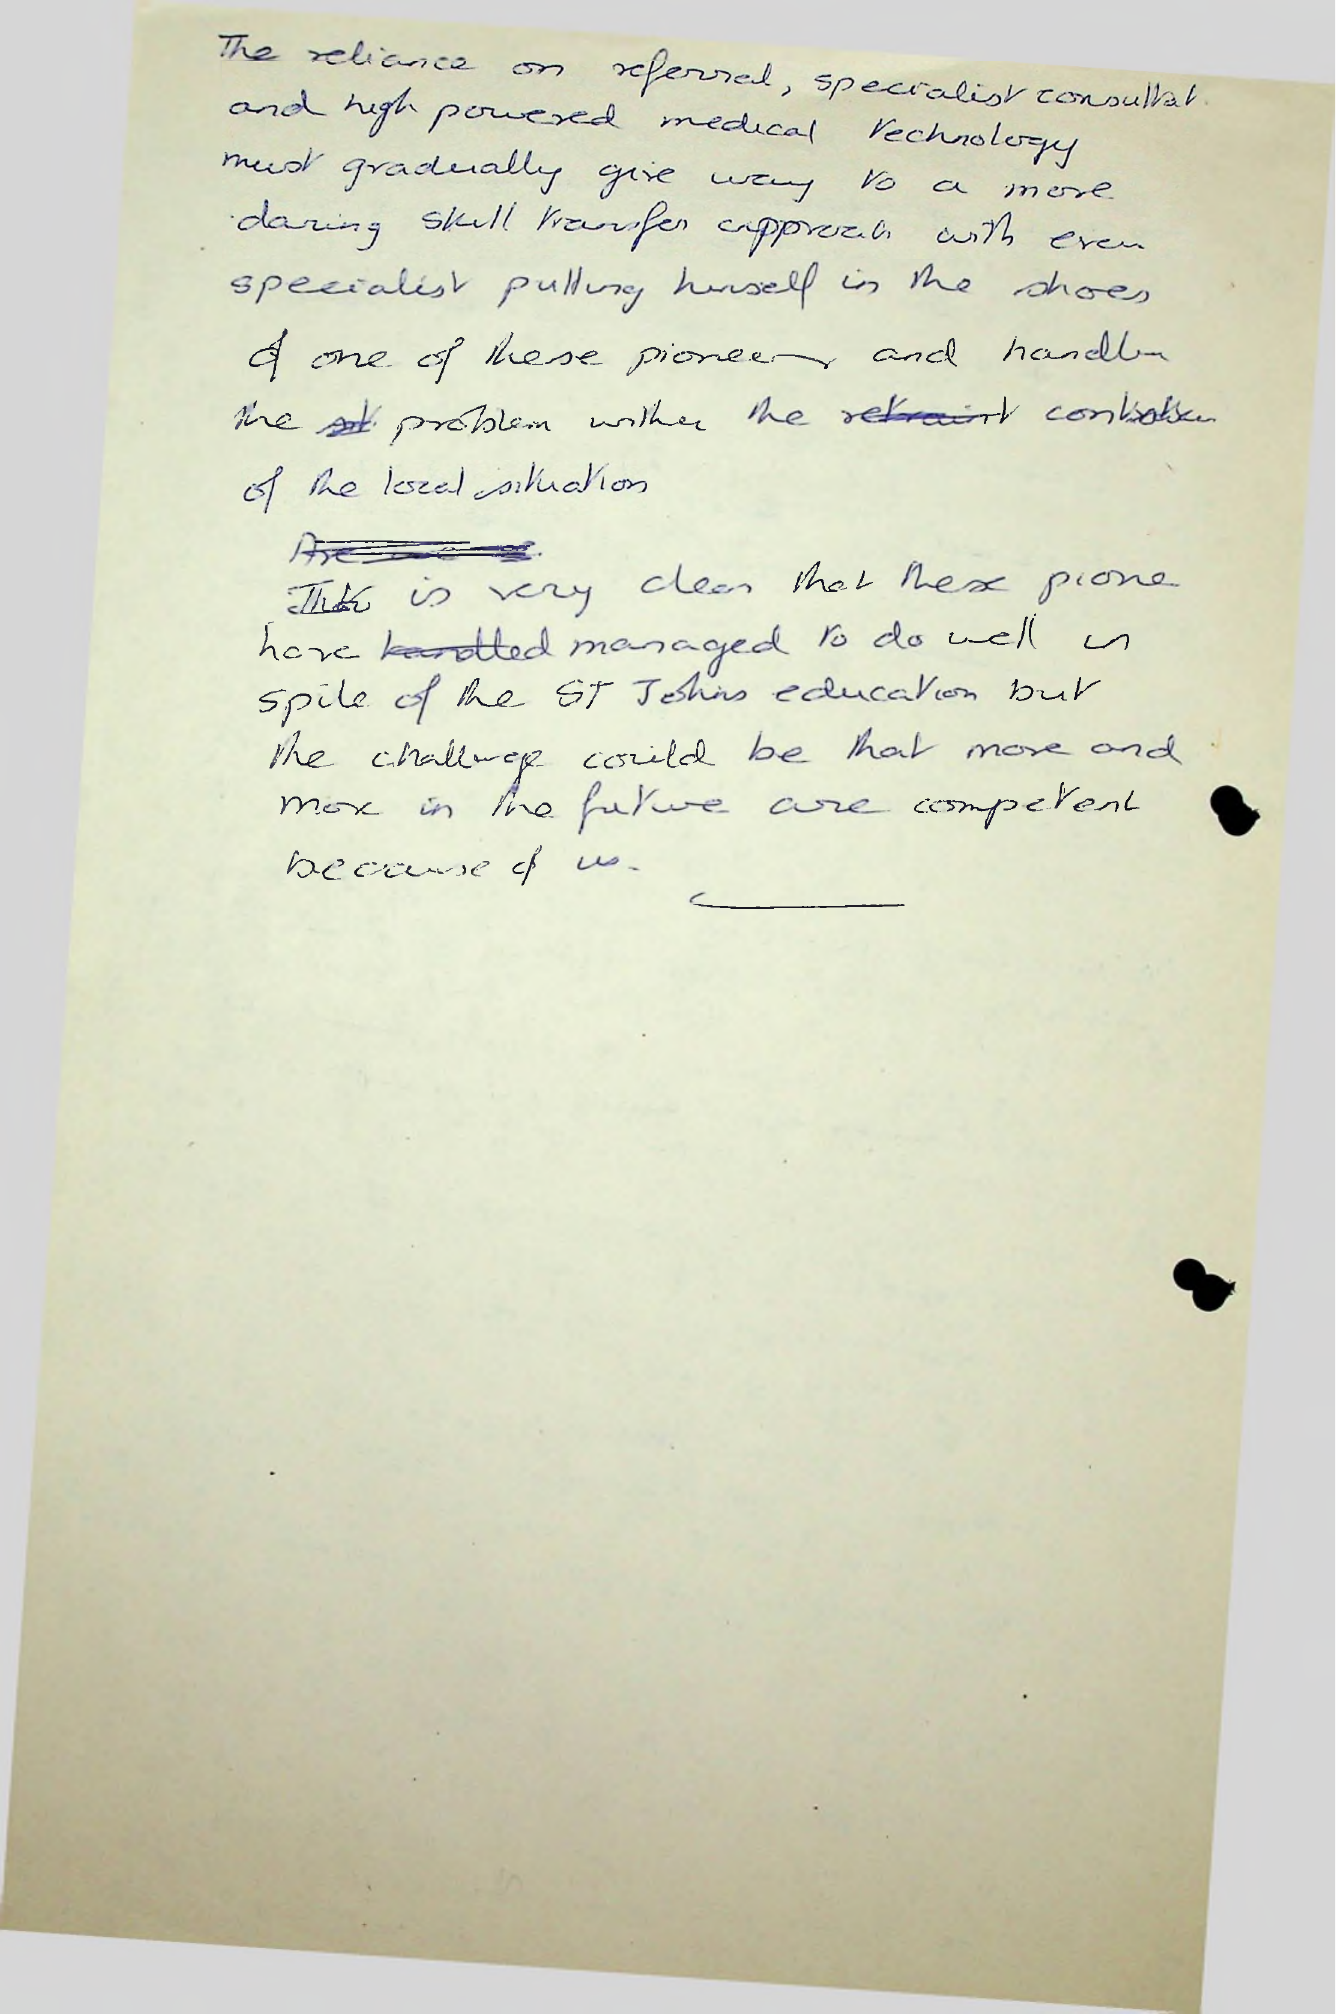 The reliance on referral, specialist consultat.
and high powered medical technology
must gradually give way to a more
daring skill transfer approach with even
specialist putting himself in the shoes
of one of these pioneers and handle
the problem within the
of the local situation
It is very clear that these pione
have handled managed to do well in
spite of the St Johns education but
the challenge could be that more and
more in the future are competent
because of us.